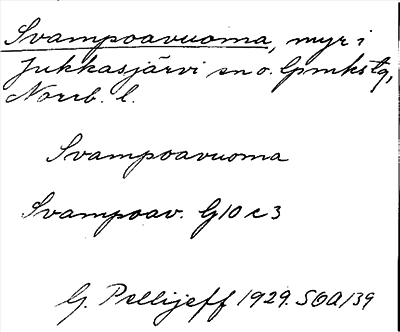 Svampoavuoma, myr i
Jukkasjärvi sn o. lpmkstg,
Norrb. l.
Svampoavuoma
Svampoav. G10c3
G. Pellijeff 1929. SOA139